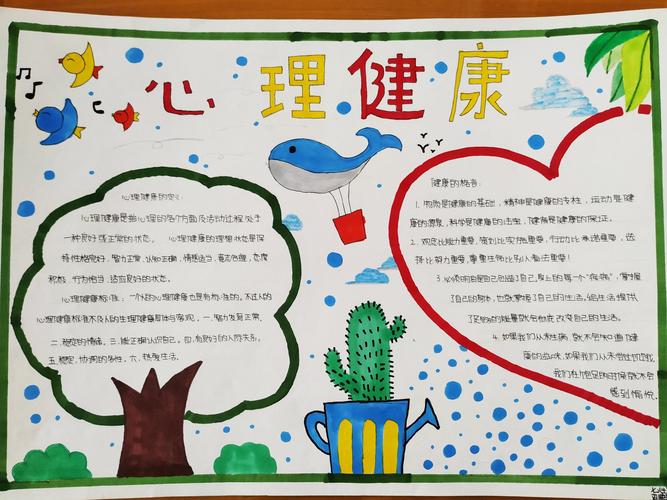 心理健康
心理健康的定义:
心理健康是指心理的各个方面及活动过程处于
一种良好或正常的状态。心理健康的理想状态是保
持性格完好、智力正常、认知正确、情感适当、意志合理、态度
积极、行为恰当、适应良好的状态。
心理健康标准,一个人的心理健康也是有标准的。不过人的
心理健康标准不及人的生理健康具体与客观,一.智力发育正常.
二.稳定的情绪。三.能正确认识自己。四.有良好的人际关系。
五.稳定、协调的个性。六.热爱生活。
健康的格言:
1.物质是健康的基础,精神是健康的支柱,运动是健
康的源泉,科学是健康的法宝,健商是健康的保证。
2.观念比能力重要,策划比实施重要,行动比承诺重要,选
择比努力重要,尊重生命比别人看法重要!
3.必须明白是自己创造了自己身上的每一个“疾病”,掌握
了自己的身体,也就掌握了自己的生活。给生活提供
了足够的能量就会彻底改变自己的生活。
4.如果我们从未生病,就不会知道健
康的滋味,如果我们从未尝过饥饿,
我们在饱足的时候就不会
感到愉悦.